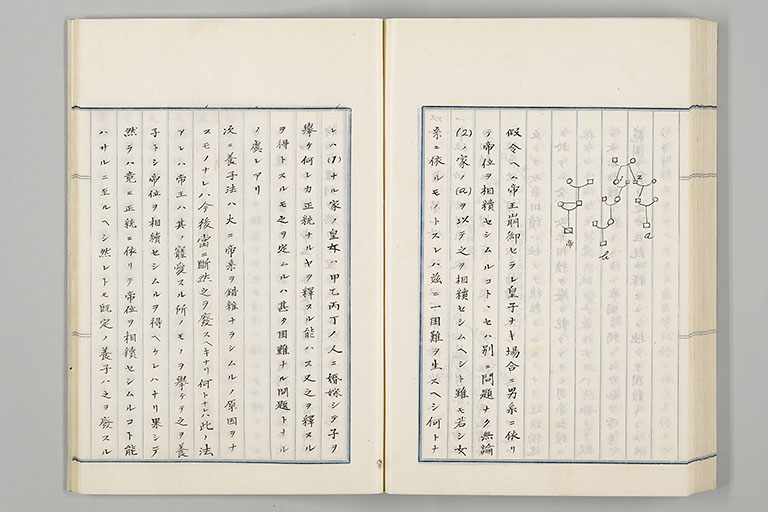 2
a
帝
b
假令ヘハ帝王崩御セラレ皇子ナキ場合ニ男系ニ依リ
テ帝位ヲ相續セシムルコト、セハ別ニ問題ナク無論
(2)ノ家ノ(a)ヲ以テ之ヲ相續セシムヘシト雖モ若シ女
系ニ依ルモノトスレハ茲ニ一困難ヲ生スヘシ何トナ
レハ(1)ナル家ノ皇女ハ甲乙丙丁ノ人ニ婚嫁シテ子ヲ
擧ケ何レカ正統ナルヤヲ釋スル能ハス又之ヲ釋スル
ヲ得トスルモ之ヲ定ムルハ甚タ困難ナル問題トナル
ノ虞レアリ
次ニ養子法ハ大ニ帝系ヲ錯雜ナラシムルノ原因ヲナ
スモノナレハ今後当ニ断然之ヲ廢スヘキナリ何トナレハ此ノ法
アレハ帝王ハ其寵愛スル所ノモノヲ擧ケテ之ヲ養
子トシ帝位ヲ相續セシムルヲ得ヘケレハナリ果シテ
然ラハ竟ニ正統ニ依リテ帝位ヲ相續セシムルコト能
ハサルニ至ルヘシ然レトモ既定ノ養子ハ之ヲ廢スル